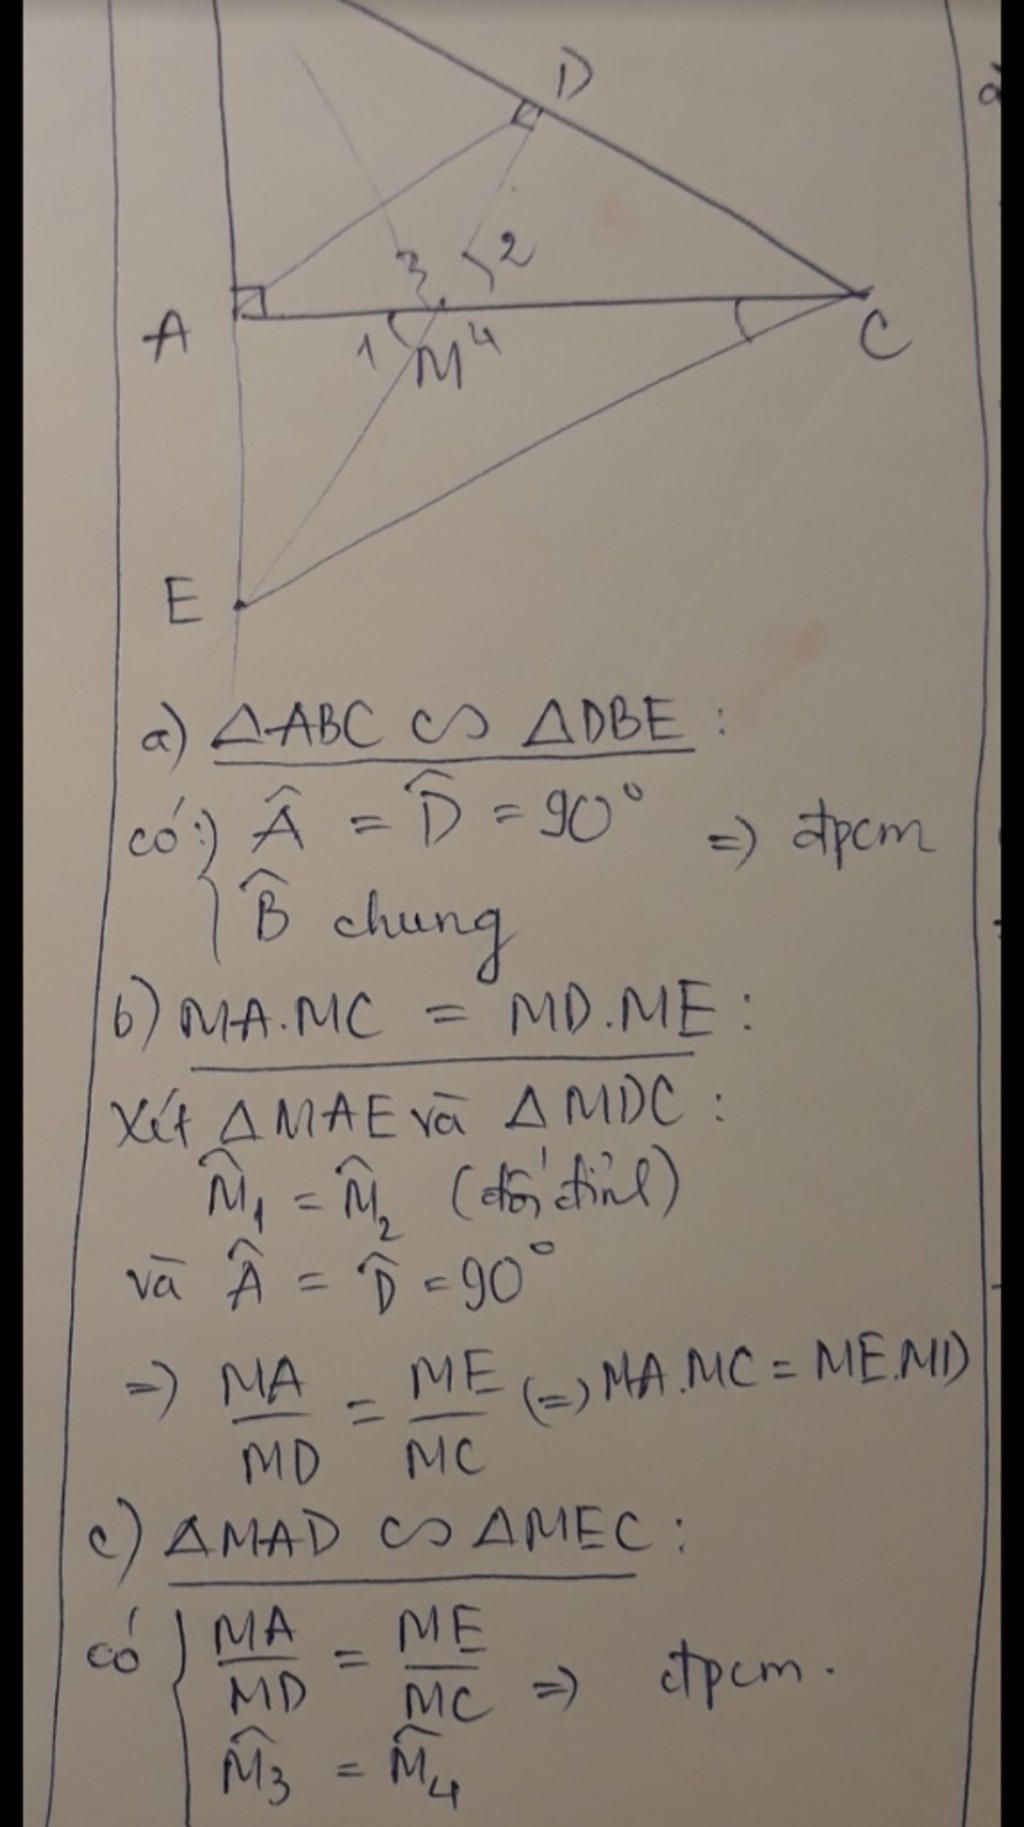 D
3 2
A
1 M 4
C
E
a) ΔABC ∽ ΔDBE :
có: { Â = D̂ = 90° => đpcm
B̂ chung
b) MA.MC = MD.ME :
Xét ΔMAE và ΔMDC :
M̂₁ = M̂₂ (đối đỉnh)
và Â = D̂ = 90°
=> MA/MD = ME/MC (=> MA.MC = ME.MD
c) ΔMAD ∽ ΔMEC :
có { MA/MD = ME/MC => đpcm.
M̂₃ = M̂₄